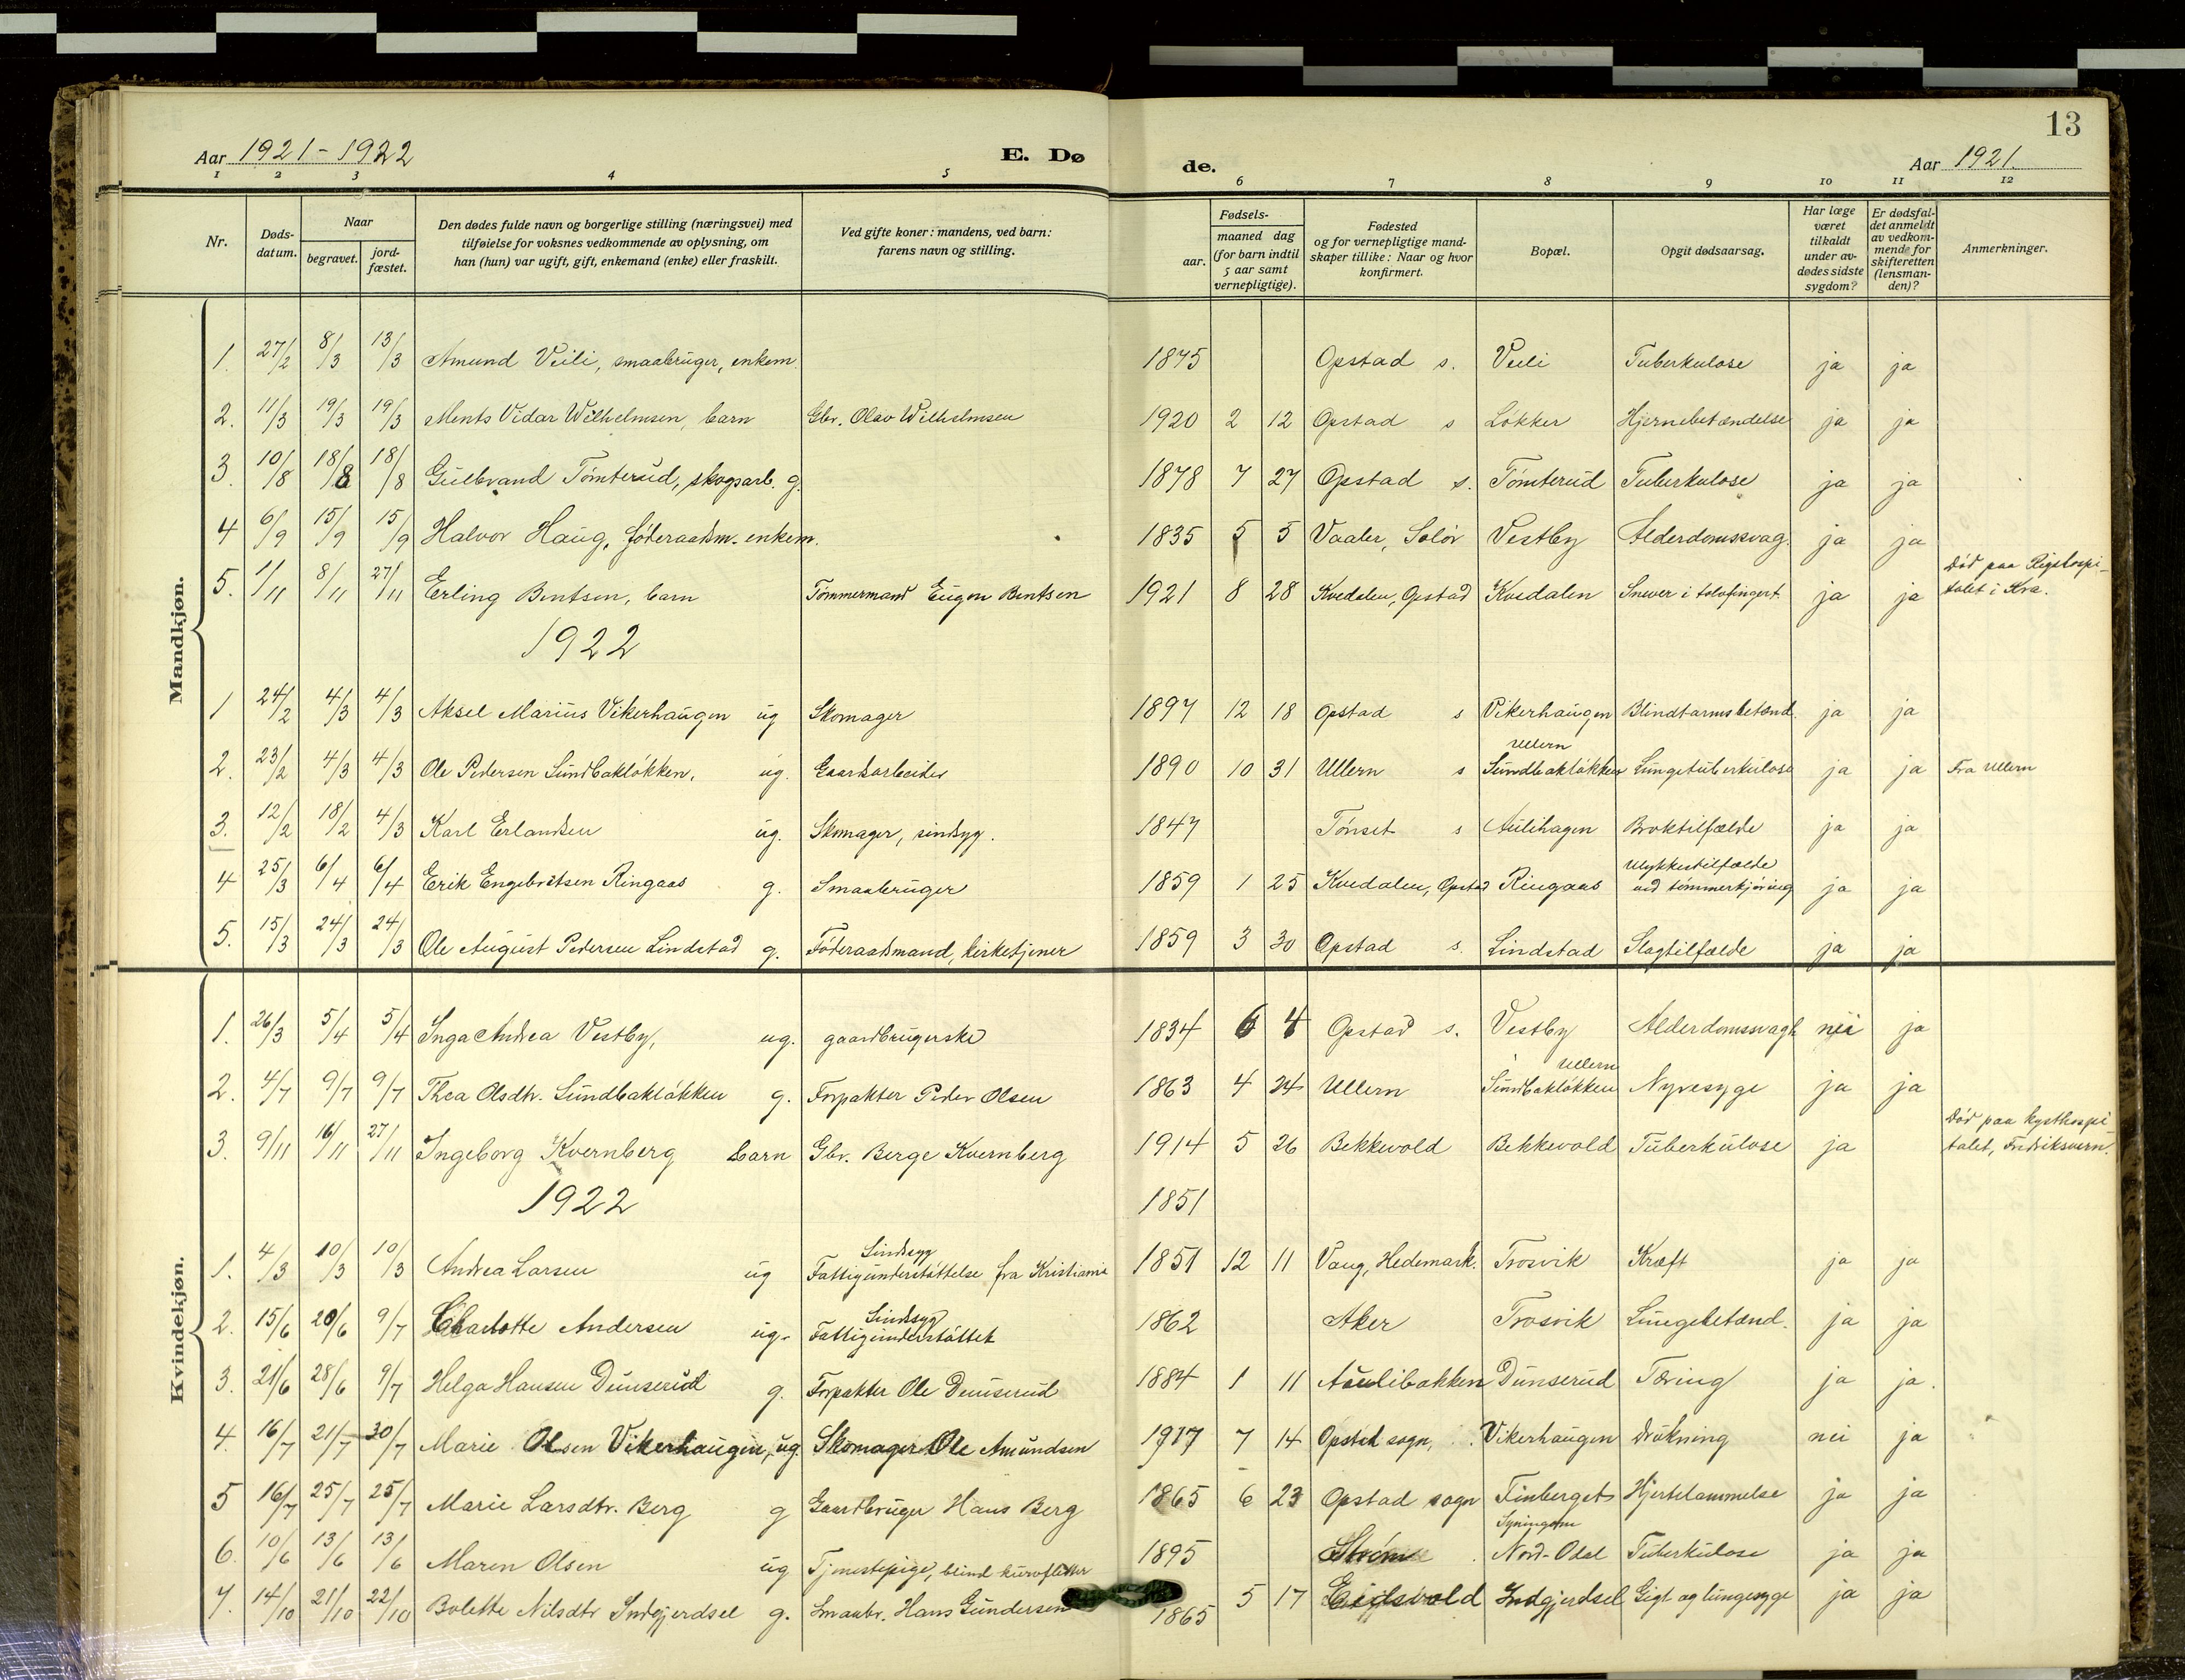 13
Aar 1921-1922 E. Døde. Aar 1921
1 2 3 4 5 6 7 8 9 10 11 12
Nr. Døds-datum. Naar begravet. jord-fæstet. Den dødes fulde navn og borgerlige stilling (næringsvei) med tilføielse for voksnes vedkommende av oplysning, om han (hun) var ugift, gift, enkemand (enke) eller fraskilt. Ved gifte koner: mandens, ved barn: farens navn og stilling. Fødsels- aar. maaned dag (for barn indtil 5 aar samt vernepligtige). Fødested og for vernepligtige mandskaper tillike: Naar og hvor konfirmert. Bopæl. Opgit dødsaarsag. Har læge været tilkaldt under avdødes sidste sygdom? Er dødsfaldet anmeldt av vedkommende for skifteretten (lensmanden)? Anmerkninger.
Mandkjøn.
1. 27/2 8/3 13/3 Amund Veili, smaabruger, enkem. 1875 Opstad s. Veili Tuberkulose ja ja
2. 11/3 19/3 19/3 Ments Vidar Wilhelmsen, barn Gbr. Olav Wilhelmsen 1920 2 12 Opstad s Løkker Hjernebetændelse ja ja
3. 10/8 18/8 18/8 Gulbrand Tømterud, skogsarb. g. 1878 7 27 Opstad s. Tømterud Tuberkulose ja ja
4 6/9 15/9 15/9 Halvor Haug, føderaadsm. enkem. 1835 5 5 Vaaler, Solør Vestby Alderdomssvag. ja ja
5. 1/11 8/11 27/11 Erling Bentsen, barn Tømmermand Eugen Bentsen 1921 8 28 Kvedalen, Opstad Kvedalen Snever i tolvfingert. ja ja Død paa Rigshospitalet i Kra.
1922
1 24/2 4/3 4/3 Aksel Marius Vikerhaugen ug Skomager 1897 12 18 Opstad s Vikerhaugen Blindtarmsbetænd. ja ja
2. 23/2 4/3 4/3 Ole Pedersen Sundbakløkken, ug. Gaardsarbeider 1890 10 31 Ullern s Ullern Sundbakløkken Lungetuberkulose ja ja Fra Ullern
3. 12/2 18/2 4/3 Karl Erlandsen ug. Skomager, sindsyg. 1847 Tønset s Aulihagen Broktilfælde ja ja
4 25/3 6/4 6/4 Erik Engebretsen Ringaas g. Smaabruger 1859 1 25 Kvedalen, Opstad Ringaas Ulykkestilfælde ved tømmerkjøring ja ja
5. 15/3 24/3 24/3 Ole August Pedersen Lindstad g. Føderaadsmand, kirketjener 1859 3 30 Opstad s. Lindstad Slagtilfælde ja ja
Kvindekjøn.
1. 26/3 5/4 5/4 Inga Andrea Vestby, ug. gaardbrugerske 1834 6 4 Opstad s. Vestby Alderdomssvagh nei ja
2. 4/7 9/7 9/7 Thea Olsdtr. Sundbakløkken g. Forpakter Peder Olsen 1863 4 24 Ullern Ullern Sundbakløkken Nyresyge ja ja
3. 9/11 16/11 27/11 Ingeborg Kvernberg barn Gbr. Berge Kvernberg 1914 5 26 Bekkevold Bekkevold Tuberkulose ja Død paa kysthospitalet, Fredriksvern.
1922 1851
1. 4/3 10/3 10/3 Andrea Larsen ug Sindsyg Fattigunderstøttelse fra Kristiania 1851 12 11 Vang, Hedemark. Trosvik Kræft ja ja
2. 15/6 20/6 9/7 Charlotte Andersen ug. Sindsyg Fattigunderstøttet 1862 Aker Trosvik Lungebetænd. ja ja
3. 21/6 28/6 9/7 Helga Hansen Dunserud g. Forpakter Ole Dunserud 1884 1 11 Aulibakken Dunserud Tæring ja ja.
4. 16/7 21/7 30/7 Marie Olsen Vikerhaugen, ug. Skomager Ole Amundsen 1917 7 14 Opstad sogn, Vikerhaugen Drukning nei ja
5 16/7 25/7 25/7 Marie Larsdtr. Berg g Gaardbruger Hans Berg 1865 6 23 Opstad sogn Finberget Hjertelammelse ja ja
6. 10/6 13/6 13/6 Maren Olsen ug Tjenestepige, blind kurvfletter 1895 Strøm Nord-Odal Tuberkulose ja ja
7. 14/10 21/10 22/10 Bolette Nilsdtr Indgjerdsel g. Smaabr. Hans Gundersen 1865 5 17 Eidsvold Indgjerdsel Gigt og lungesyge ja ja